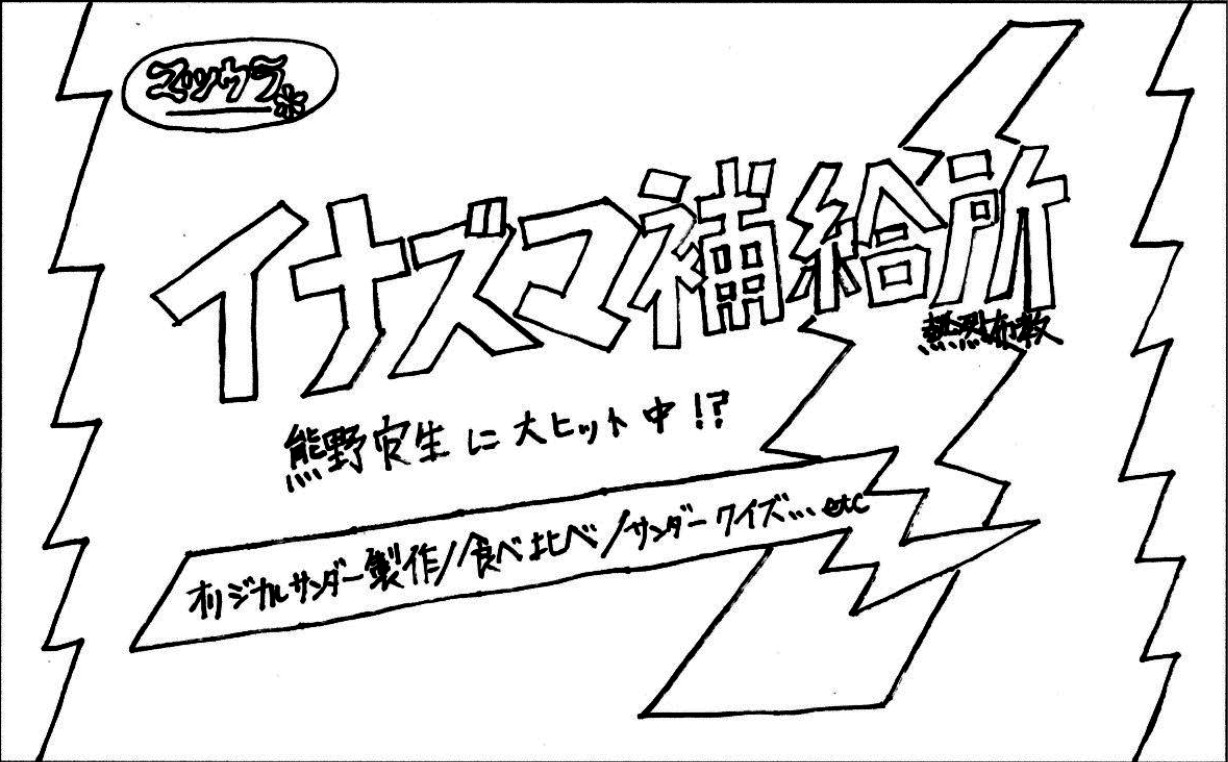 マツウラ*
イナズマ補給所
熱烈布教
熊野寮生に大ヒット中!?
オリジナルサンダー製作/食べ比べ/サンダークイズ...etc